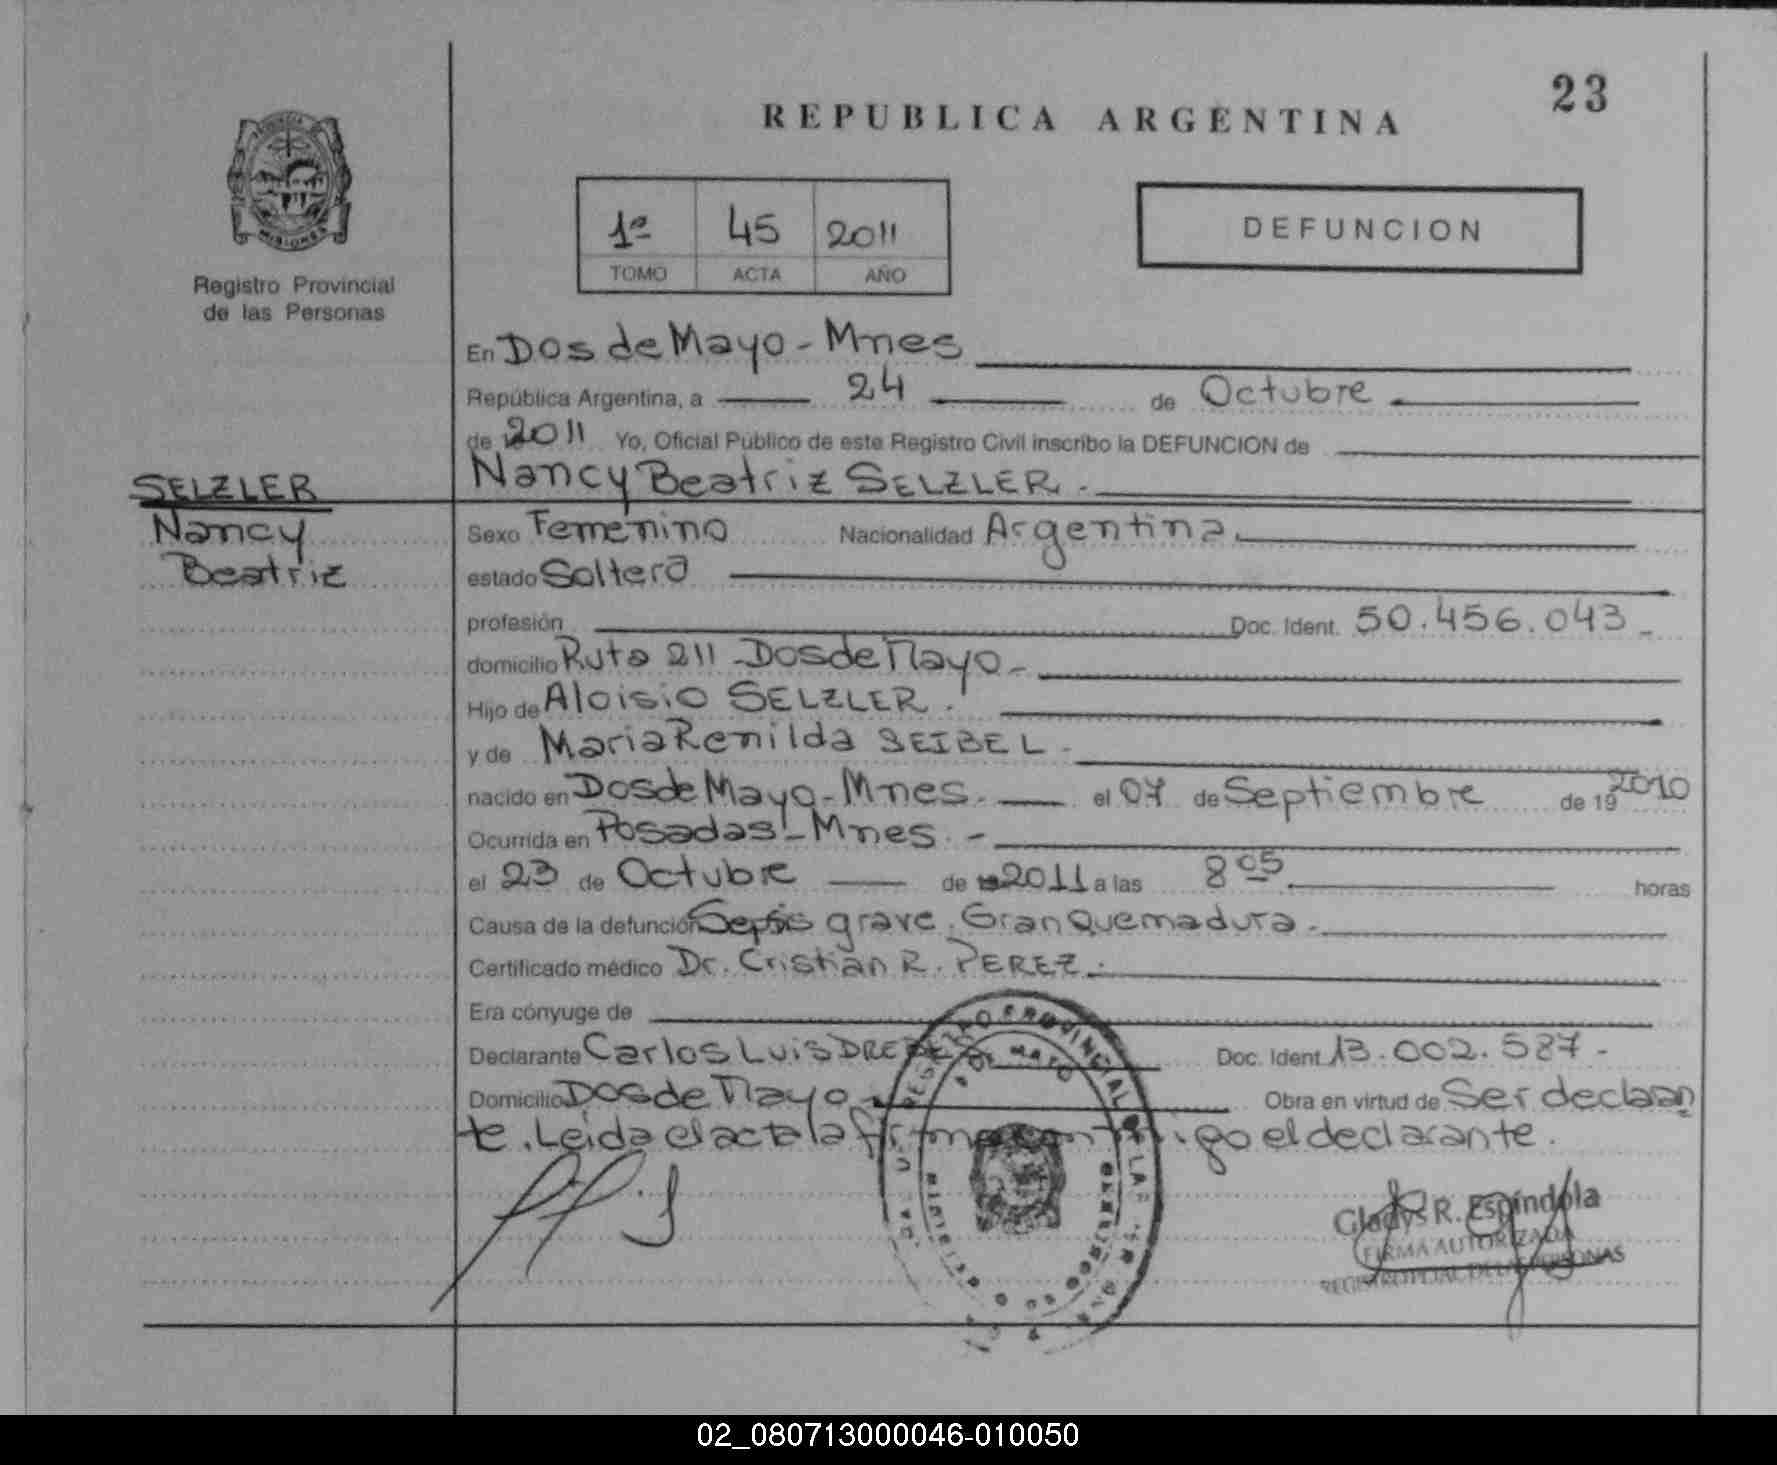 23
REPUBLICA ARGENTINA
MISIONES
Registro Provincial
de las Personas
1º 45 2011
TOMO ACTA AÑO
DEFUNCION
En Dos de Mayo - Mnes
República Argentina, a 24 de Octubre
de 2011 Yo, Oficial Público de este Registro Civil inscribo la DEFUNCION de
Nancy Beatriz SELZLER.
SELZLER
Nancy
Beatriz
Sexo Femenino Nacionalidad Argentina.
estado Soltera
profesión Doc. Ident. 50.456.043-
domicilio Ruta 211 - Dos de Mayo -
Hijo de Aloisio SELZLER.
y de Maria Renilda SEIBEL -
nacido en Dos de Mayo - Mnes. el 07 de Septiembre de 19 2010
Ocurrida en Posadas - Mnes. -
el 23 de Octubre de 2011 a las 8 05 horas
Causa de la defunción Sepsis grave. Gran Quemadura.
Certificado médico Dr. Cristian R. PEREZ.
Era cónyuge de
Declarante Carlos Luis Doc. Ident. 13.002.587-
Domicilio Dos de Mayo Obra en virtud de Ser declaran
te. Leida el acta la firma conmigo el declarante.
REGISTRO PROVINCIAL DE LAS
Gladys R. Espíndola
FIRMA AUTORIZADA
REGISTRO PCIAL. DE LAS PERSONAS
02_080713000046-010050